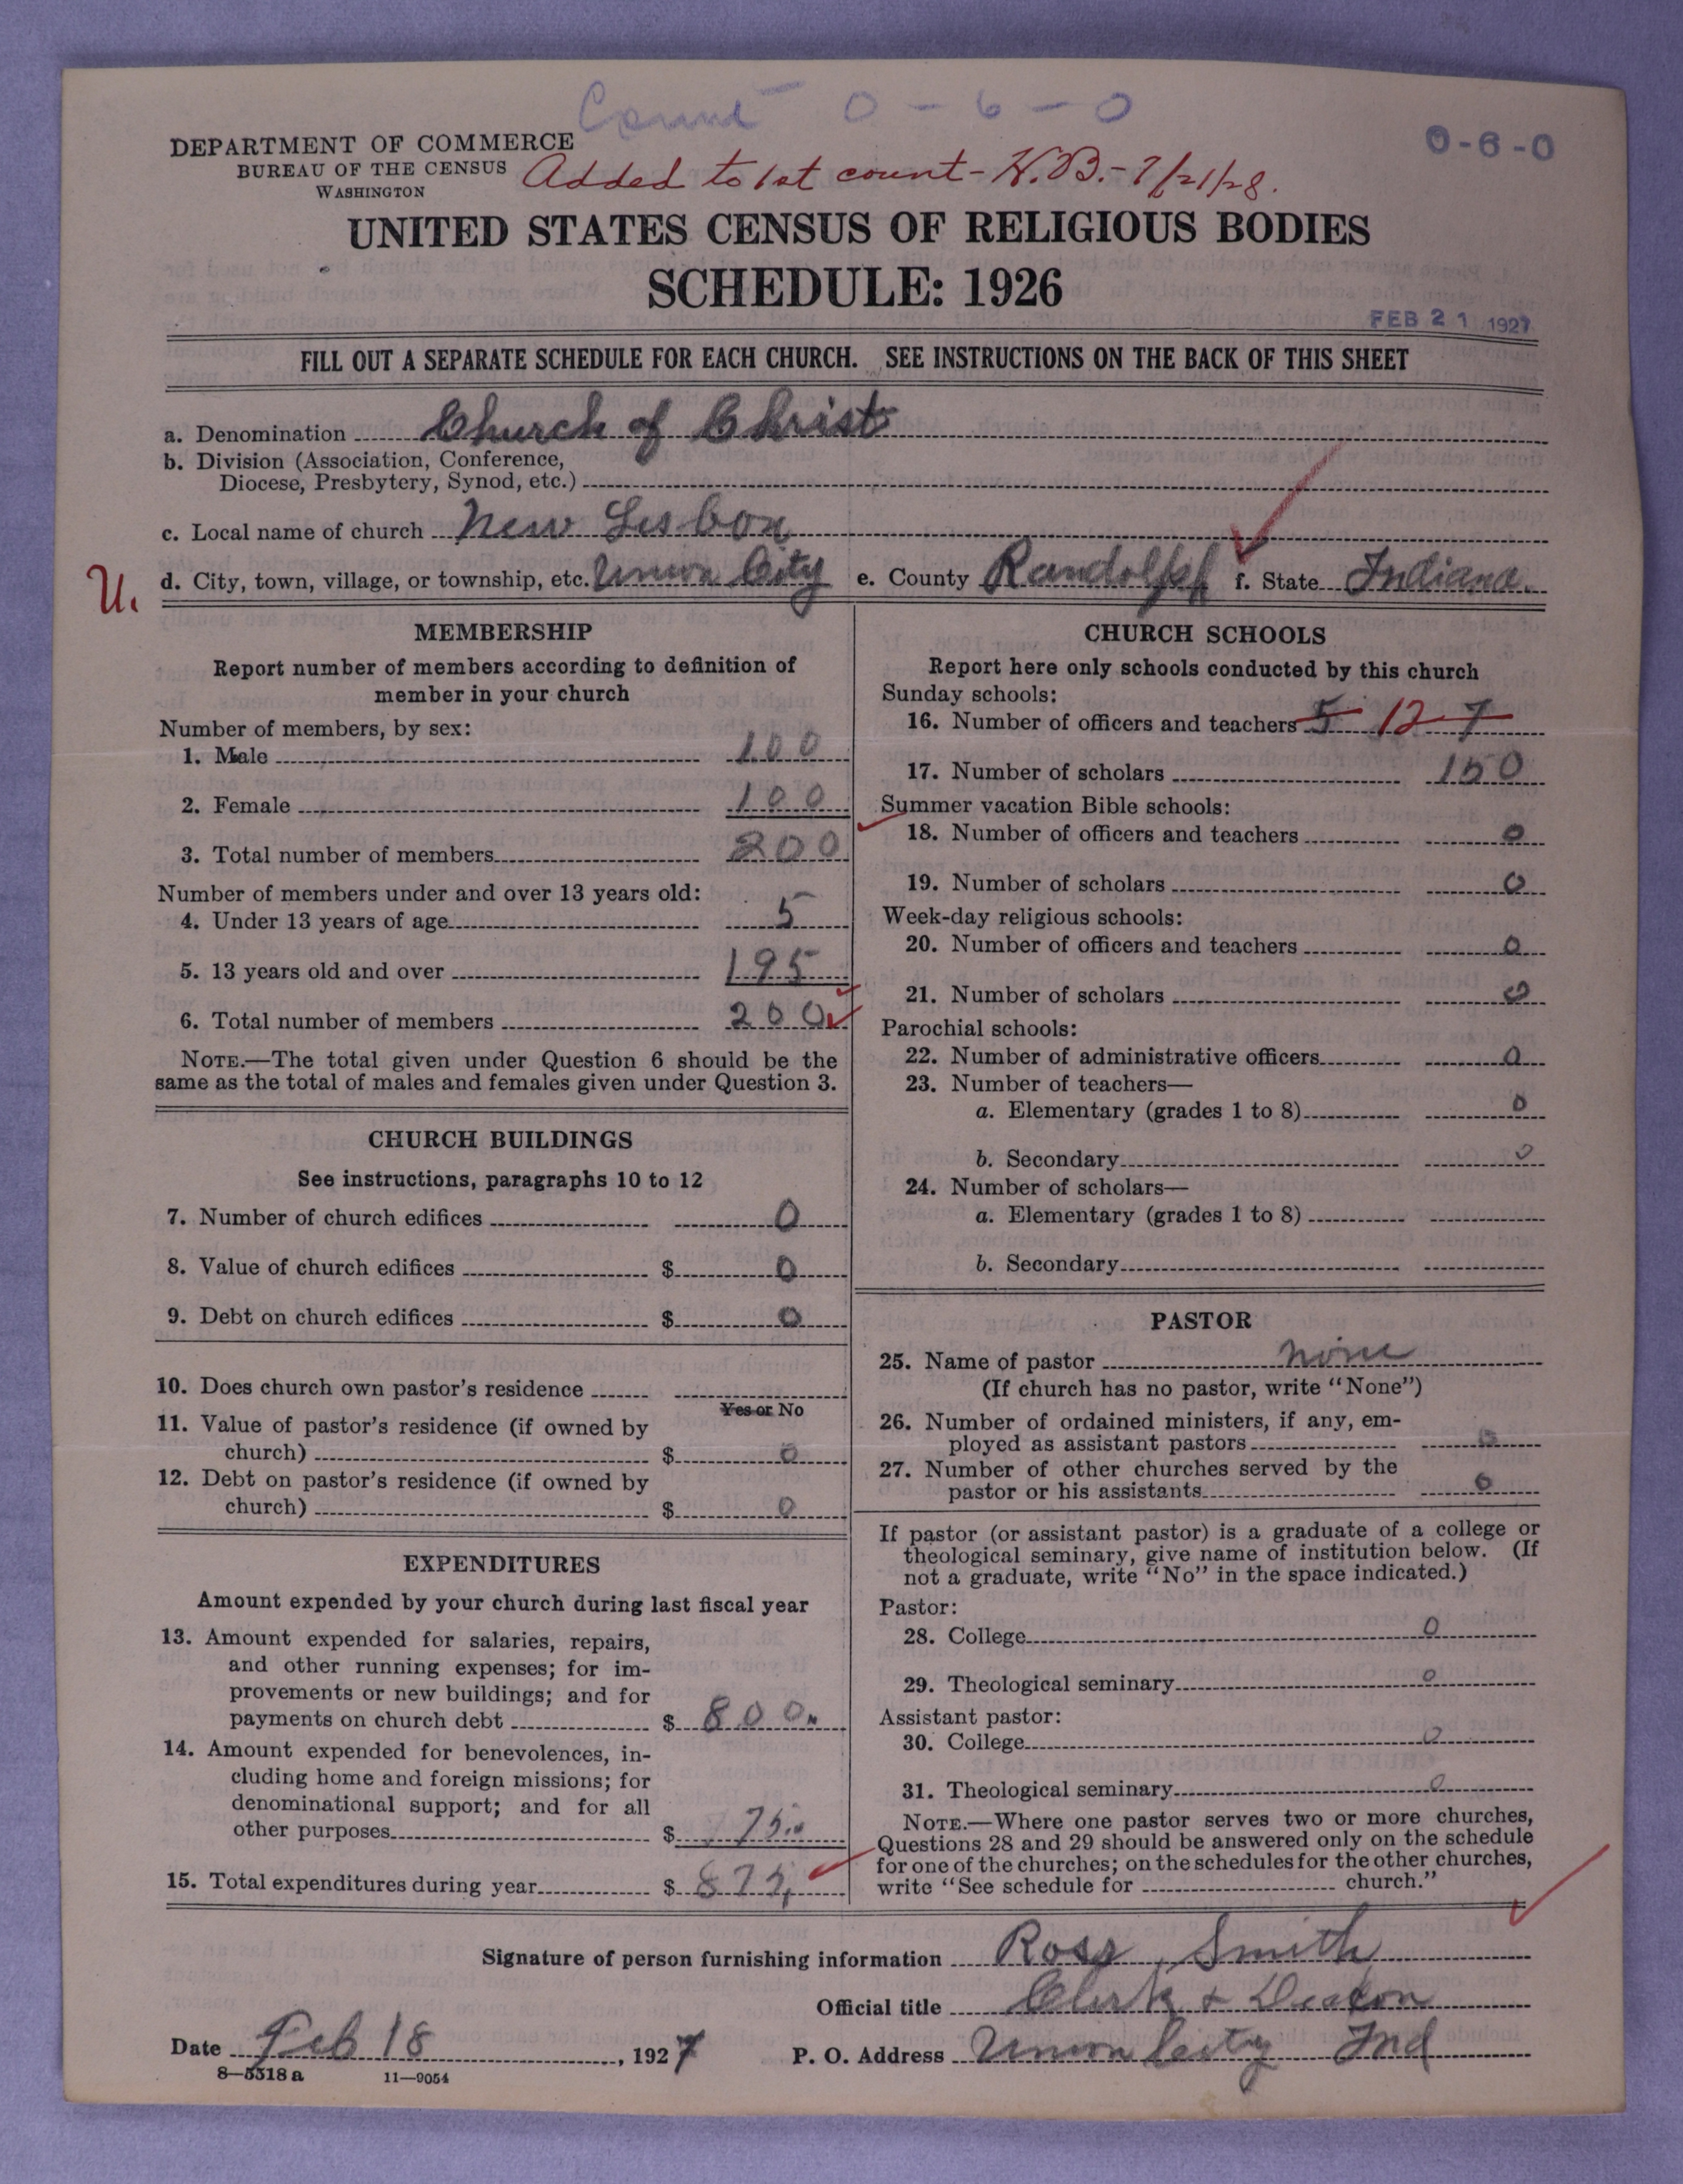 Count 0 - 6 - 0
0-6-0
DEPARTMENT OF COMMERCE
BUREAU OF THE CENSUS
WASHINGTON
Added to 1st count - H.B. - 7/21/28.
UNITED STATES CENSUS OF RELIGIOUS BODIES
SCHEDULE: 1926
FEB 21 1927
FILL OUT A SEPARATE SCHEDULE FOR EACH CHURCH. SEE INSTRUCTIONS ON THE BACK OF THIS SHEET
a. Denomination Church of Christ
b. Division (Association, Conference,
Diocese, Presbytery, Synod, etc.)
c. Local name of church New Lisbon
U.
d. City, town, village, or township, etc. Union City e. County Randolph f. State Indiana.
MEMBERSHIP
Report number of members according to definition of
member in your church
Number of members, by sex:
1. Male 100
2. Female 100
3. Total number of members 200
Number of members under and over 13 years old:
4. Under 13 years of age 5
5. 13 years old and over 195
6. Total number of members 200
NOTE.—The total given under Question 6 should be the
same as the total of males and females given under Question 3.
CHURCH BUILDINGS
See instructions, paragraphs 10 to 12
7. Number of church edifices 0
8. Value of church edifices $ 0
9. Debt on church edifices $ 0
10. Does church own pastor's residence
Yes or No
11. Value of pastor's residence (if owned by
church) $ 0
12. Debt on pastor's residence (if owned by
church) $ 0
EXPENDITURES
Amount expended by your church during last fiscal year
13. Amount expended for salaries, repairs,
and other running expenses; for im-
provements or new buildings; and for
payments on church debt $ 800
14. Amount expended for benevolences, in-
cluding home and foreign missions; for
denominational support; and for all
other purposes $ 75
15. Total expenditures during year $ 875
CHURCH SCHOOLS
Report here only schools conducted by this church
Sunday schools:
16. Number of officers and teachers 5 12 7
17. Number of scholars 150
Summer vacation Bible schools:
18. Number of officers and teachers 0
19. Number of scholars 0
Week-day religious schools:
20. Number of officers and teachers 0
21. Number of scholars 0
Parochial schools:
22. Number of administrative officers 0
23. Number of teachers—
a. Elementary (grades 1 to 8) 0
b. Secondary 0
24. Number of scholars—
a. Elementary (grades 1 to 8)
b. Secondary
PASTOR
25. Name of pastor none
(If church has no pastor, write "None")
26. Number of ordained ministers, if any, em-
ployed as assistant pastors 0
27. Number of other churches served by the
pastor or his assistants 0
If pastor (or assistant pastor) is a graduate of a college or
theological seminary, give name of institution below. (If
not a graduate, write "No" in the space indicated.)
Pastor:
28. College 0
29. Theological seminary 0
Assistant pastor:
30. College 0
31. Theological seminary 0
NOTE.—Where one pastor serves two or more churches,
Questions 28 and 29 should be answered only on the schedule
for one of the churches; on the schedules for the other churches,
write "See schedule for church."
Signature of person furnishing information Ross Smith
Official title Clerk & Deacon
Date Feb 18, 1927 P. O. Address Union City Ind
8—5518 a 11—9054